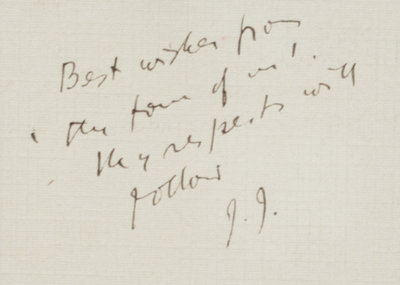 Best wishes from
the four of us!
respects will
follow
J. J.